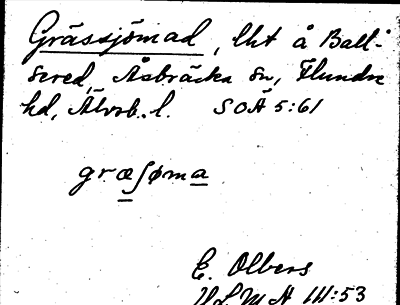 Grässjömad, lht å Ball-
sered, Åsbräcka sn, Flundre
hd, Älvsb. l. SOÄ 5:61
græʃøma
E. Olbers
ULMA 111:53